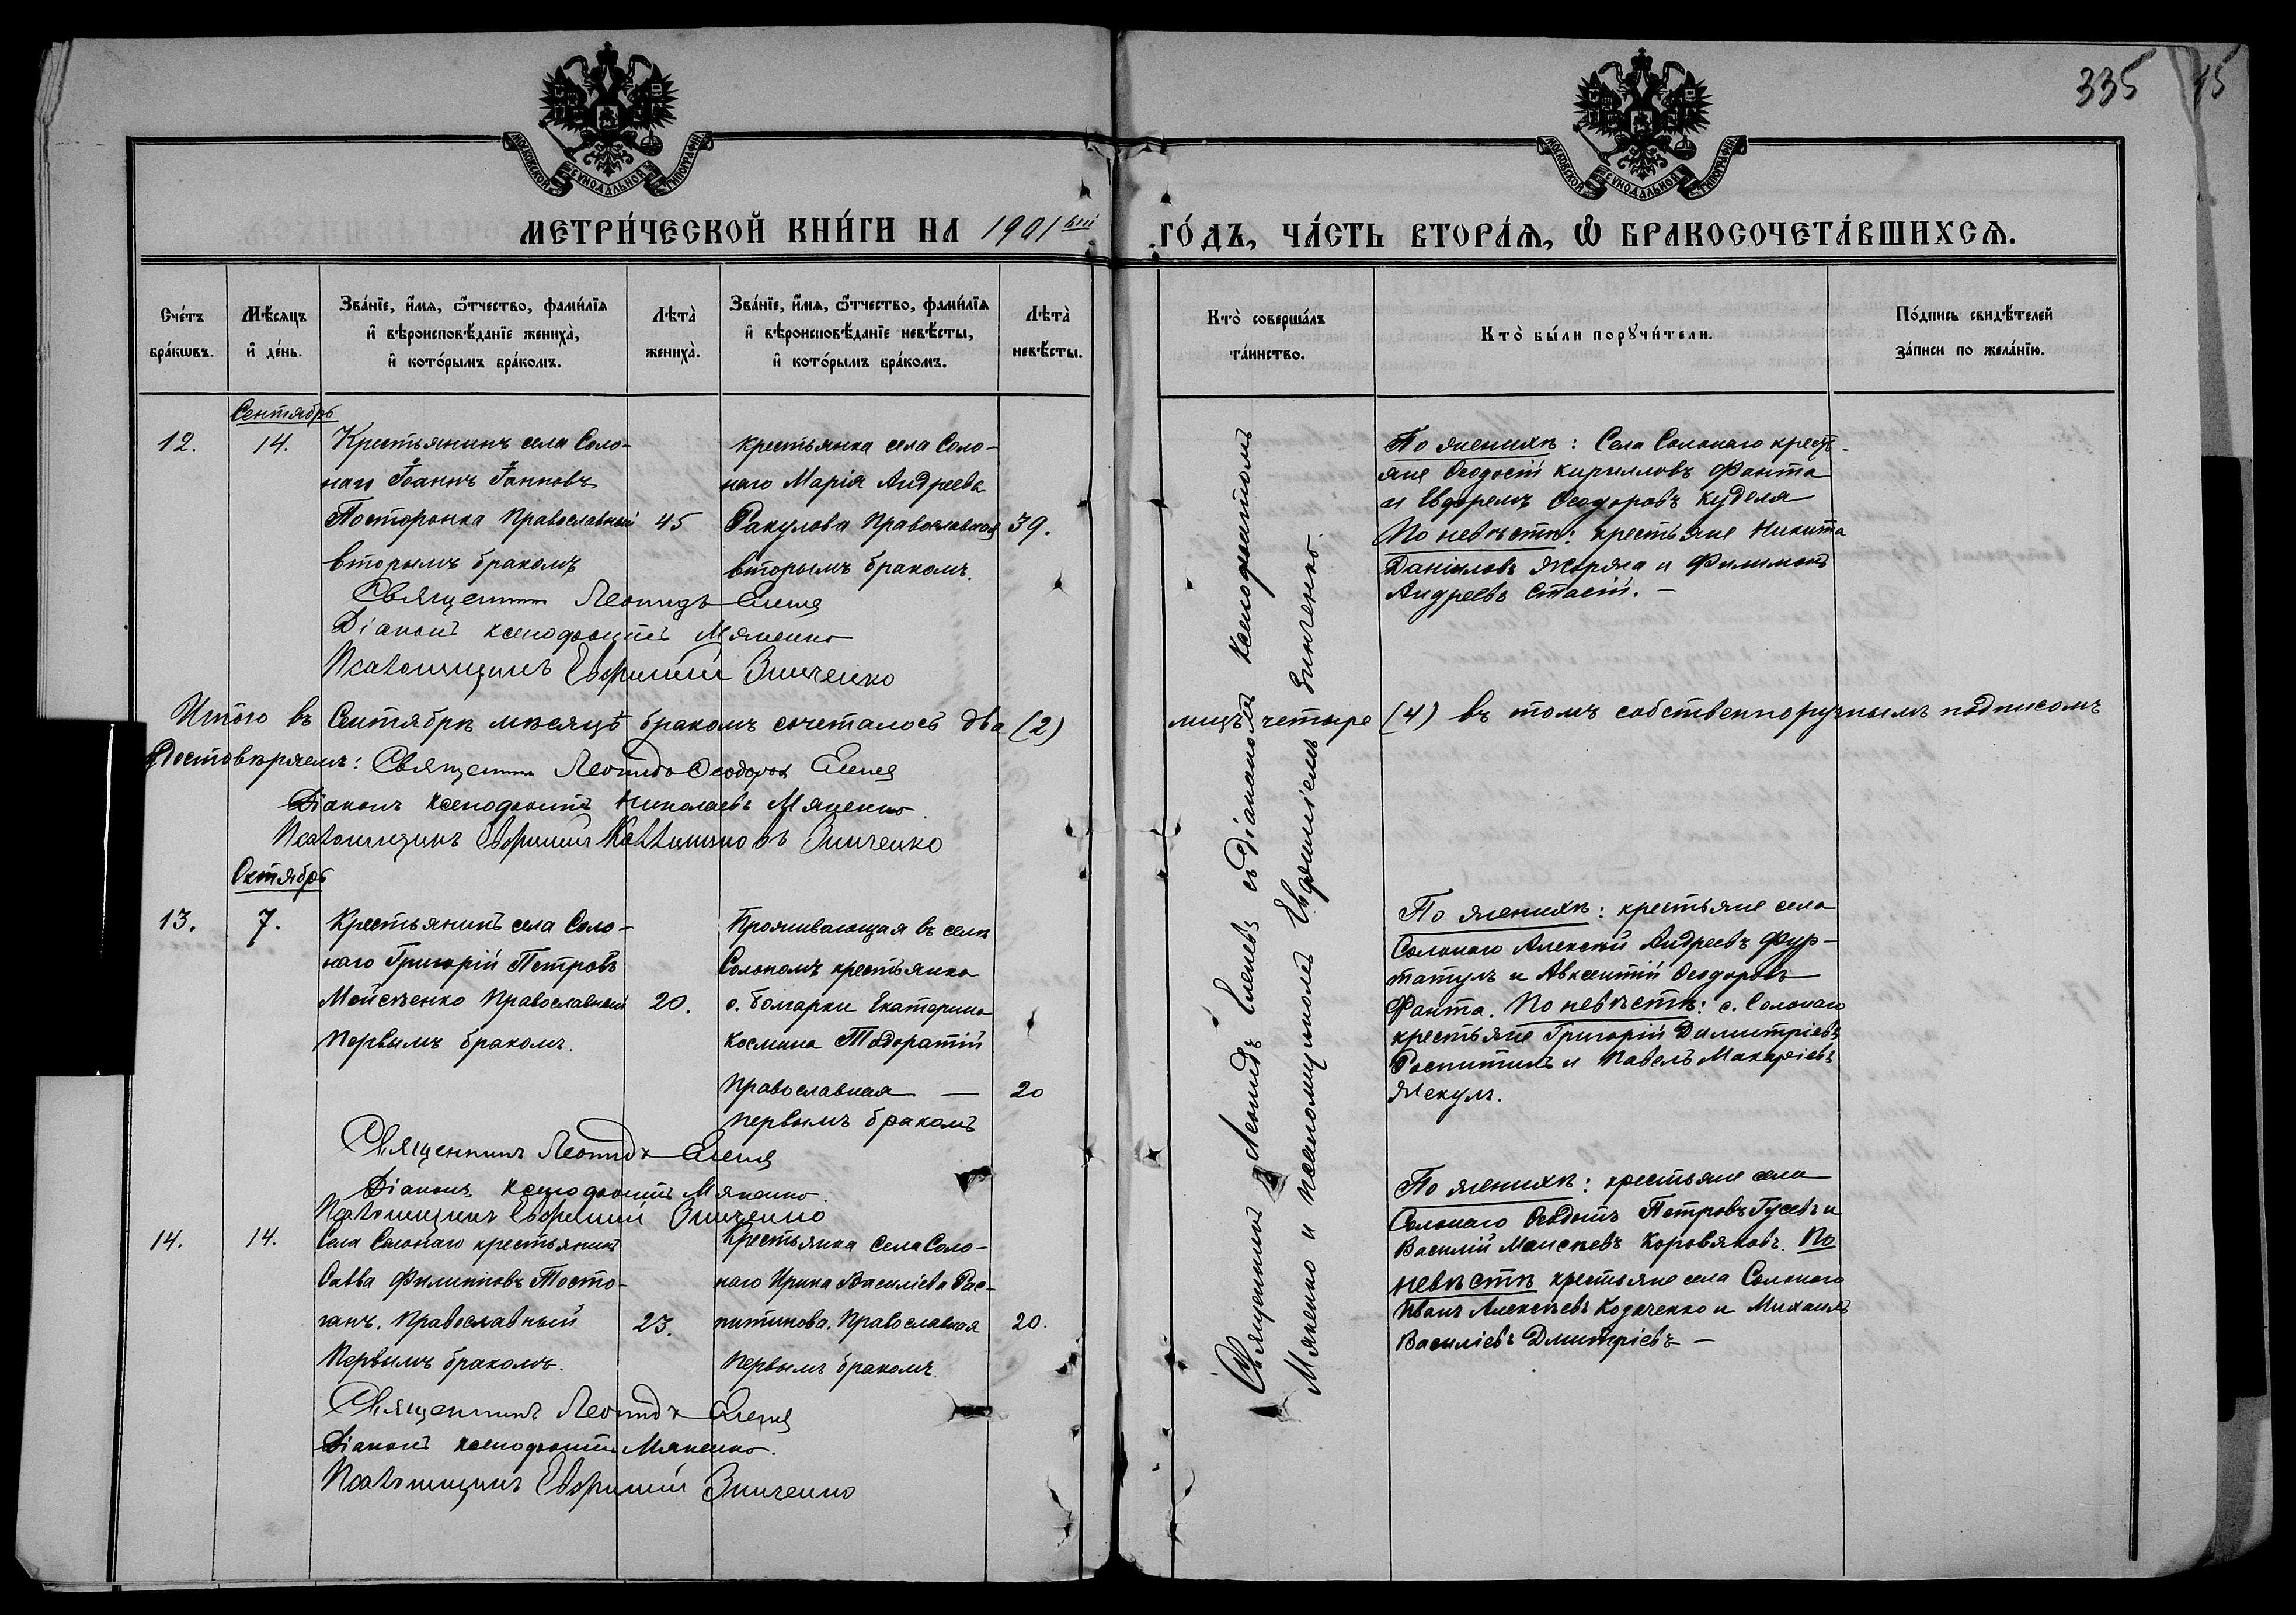 335
15
МОСКОВСКОЙ СѴНОДАЛЬНОЙ ТИПОГРАФІИ
МОСКОВСКОЙ СѴНОДАЛЬНОЙ ТИПОГРАФІИ
МЕТРИ́ЧЕСКОЙ КНИ́ГИ НА 1901ый ГО́ДЪ, ЧА́СТЬ ВТОРА́Ѧ, Ѽ БРАКОСОЧЕТА́ВШИХСѦ.
Сче́тъ
бра́кѡвъ.
Мѣ́сяцъ
и҆ де́нь.
Зва́нїе, и҆́мѧ, ѻ҆́тчество, фами́лїѧ
и҆ вѣроисповѣ́данїе жениха̀,
и҆ кото́рымъ бра́комъ.
Лѣта̀
жениха̀.
Зва́нїе, и҆́мѧ, ѻ҆́тчество, фами́лїѧ
и҆ вѣроисповѣ́данїе невѣ́сты,
и҆ кото́рымъ бра́комъ.
Лѣта̀
невѣ́сты.
Кто̀ соверша́лъ
та́инство.
Кто̀ бы́ли порꙋчи́тели.
По́дпись свидѣ́телей
за́писи по жела́нїю.
Сентябрь
12.
14.
Крестьянинъ села Соло-
наго Іоаннъ Іоанновъ
Посторонка Православный
вторымъ бракомъ
45
крестьянка села Соло-
наго Марія Андреева
Ракулова Православная
вторымъ бракомъ.
39.
По женихѣ: Села Солонаго кресть-
яне Ѳеодосій Кирилловъ Фанта
и Евфремъ Ѳеодоровъ Куделя
По невѣстѣ: крестьяне Никита
Даніиловъ Жоряна и Филимонъ
Андреевъ Стасій. —
Священникъ Леонидъ Еленя
Діаконъ Ксенофонтъ Мяненко
Псаломщикъ Евфимій Зинченко
Итого въ Сентябрѣ мѣсяцѣ бракомъ сочеталось два (2)
лицъ четыре (4) въ томъ собственноручнымъ подписомъ
Достовѣряемъ: Священникъ Леонидъ Ѳеодоровъ Еленя
Діаконъ Ксенофонтъ Николаевъ Мяненко.
Псаломщикъ Евфимій Зинченко
Октябрь
13.
7.
Крестьянинъ села Соло-
наго Григорій Петровъ
Мойсѣенко Православный
первымъ бракомъ.
20.
Проживающая въ селѣ
Солономъ крестьянка
с. Болгарки Екатерина
Космина Тодоратій
Православная —
первымъ бракомъ
20
По женихѣ: крестьяне села
Солонаго Алексій Андреевъ Фур-
татулъ и Авксентій Ѳеодоровъ
Фанта. По невѣстѣ: с. Солонаго
крестьяне Григорій Димитріевъ
Роспитинъ и Павелъ Макаріевъ
Жекулъ.
Священникъ Леонидъ Еленя
Діаконъ Ксенофонтъ Мяненко.
Псаломщикъ Евфимій Зинченко
14.
14.
Села Солонаго крестьянинъ
Савва Филипповъ Посто-
ганъ. Православный
первымъ бракомъ.
23.
Крестьянка села Соло-
наго Ирина Василіева Рас-
питинова. Православная
первымъ бракомъ.
20.
По женихѣ: крестьяне села
Солонаго Ѳеодотъ Петровъ Гусевъ и
Василій Моисѣевъ Коровяковъ. По
невѣстѣ крестьяне села Солонаго
Иванъ Алексѣевъ Козаченко и Михаилъ
Василіевъ Дмитріевъ —
Священникъ Леонидъ Еленя
Діаконъ Ксенофонтъ Мяненко.
Псаломщикъ Евфимій Зинченко
Священникъ Леонидъ Еленевъ съ діакономъ Ксенофонтомъ
Мяненко и псаломщикомъ Евфиміемъ Зинченко.